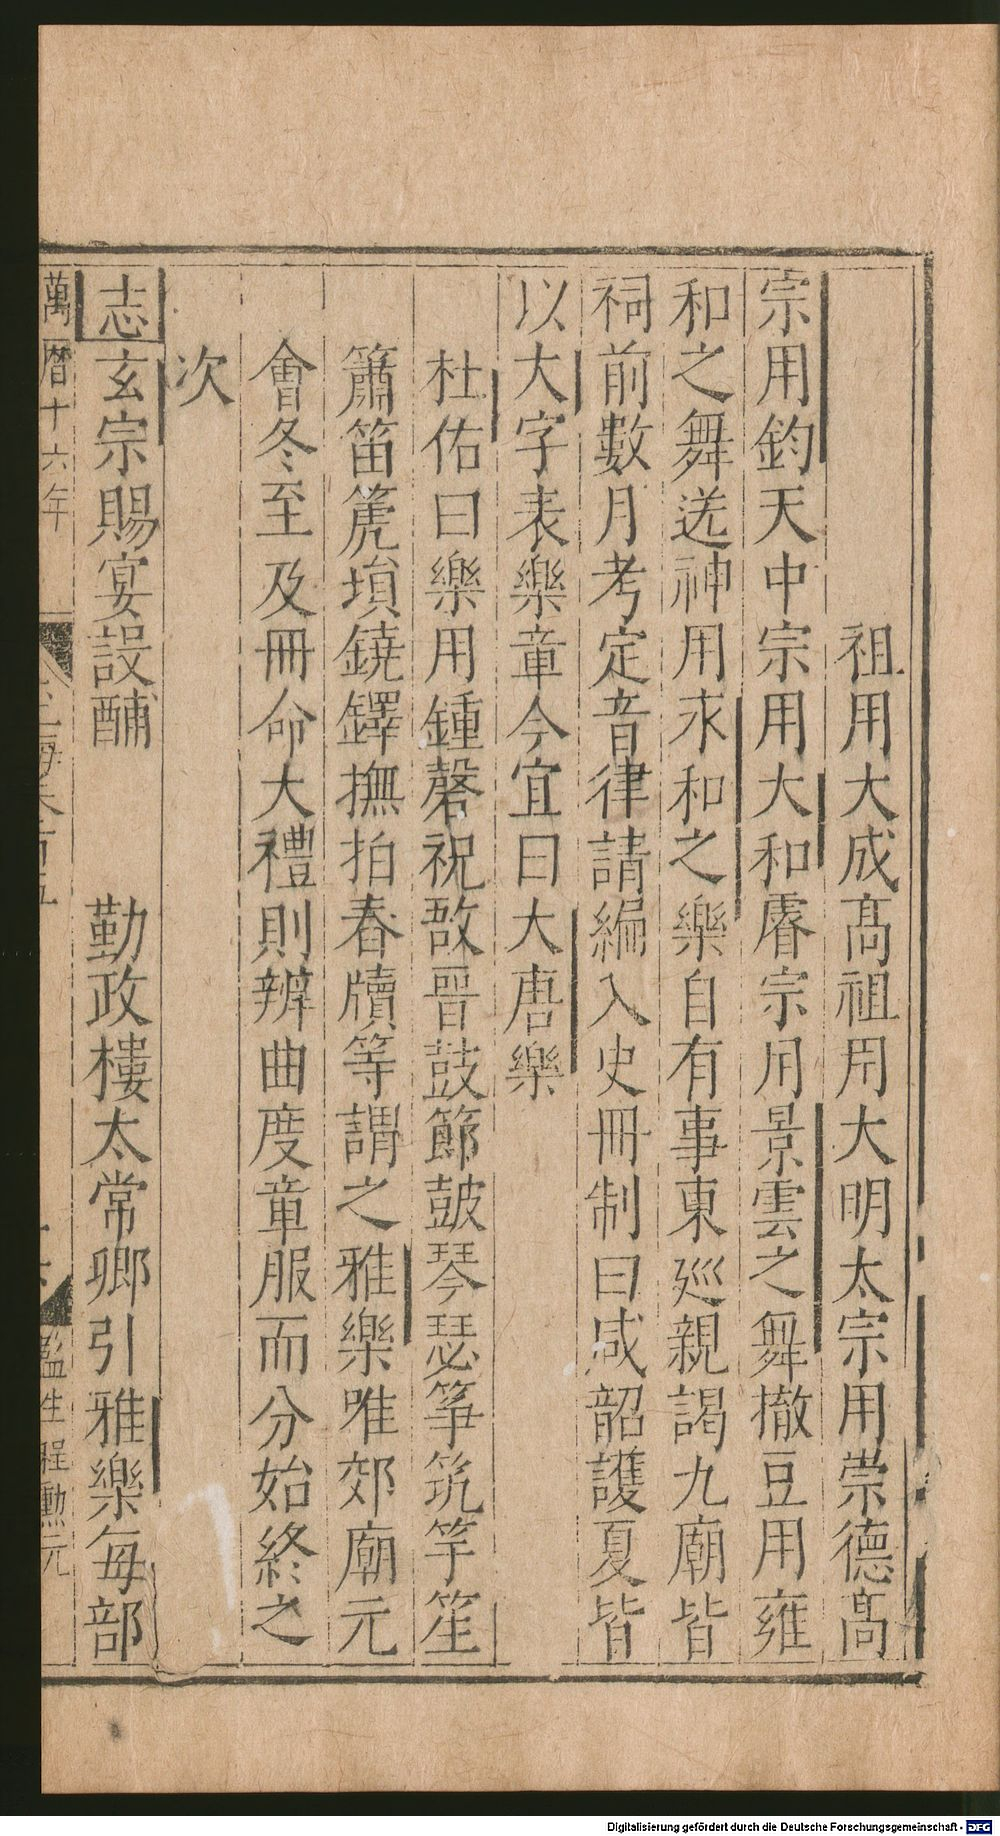 祖用大成髙祖用大明太宗用崇德髙
宗用鈞天中宗用大和睿宗用景雲之舞撤豆用雍
和之舞送神用永和之樂自有事東巡親謁九廟皆
祠前數月考定音律請編入史冊制曰咸韶護夏皆
以大字表樂章今宜曰大唐樂
杜佑曰樂用鍾磬柷敔晉鼓節鼓琴瑟箏筑竽笙
簫笛篪塤鐃鐸撫拍舂牘等謂之雅樂唯郊廟元
會冬至及冊命大禮則辨曲度章服而分始終之
次
志玄宗賜宴設酺 勤政樓太常卿引雅樂每部
萬曆十六年
監生程勳元
Digitalisierung gefördert durch die Deutsche Forschungsgemeinschaft - DFG